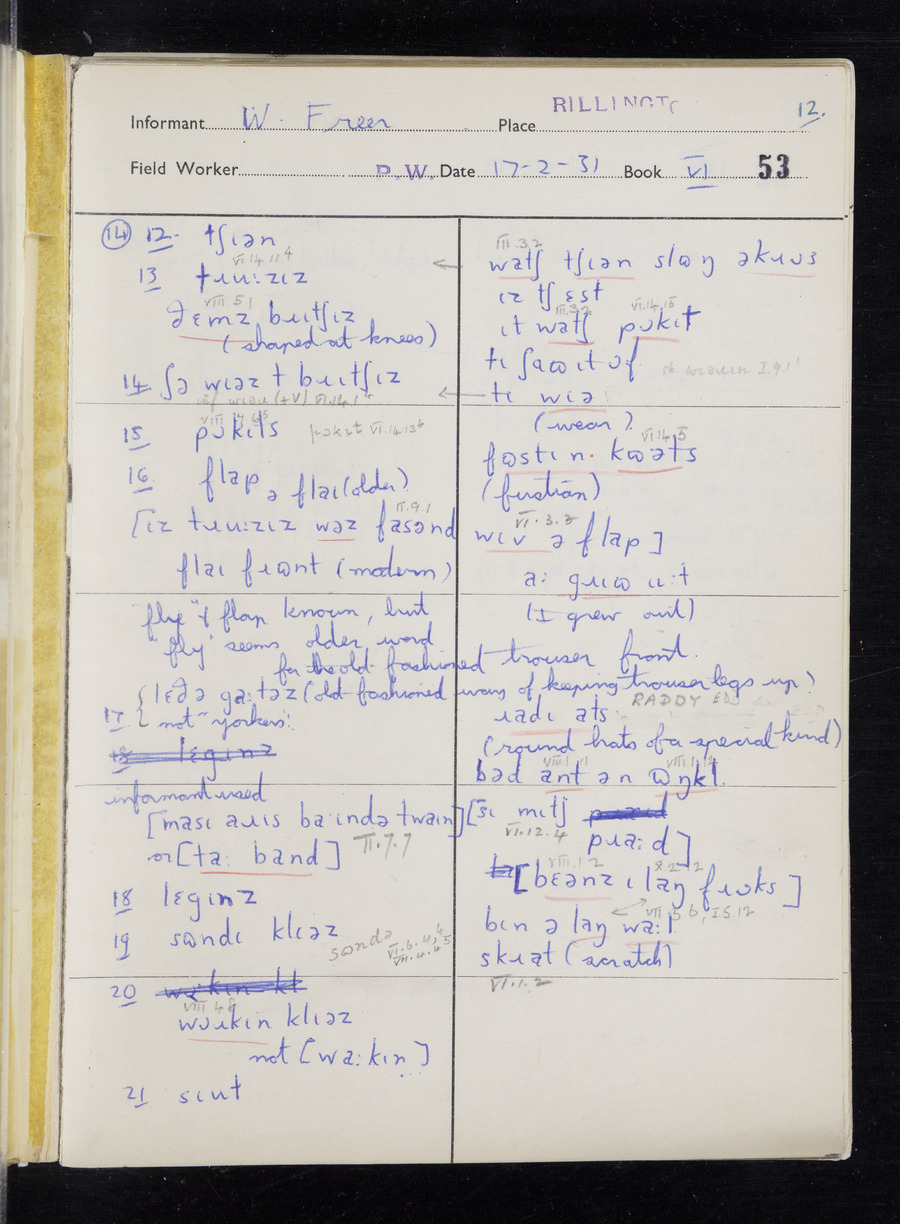 RILLINGTO
12.
Informant W. Freer Place
Field Worker P.W. Date 17-2-31 Book VI 53
(14) 12. tʃɩən
VI.14.11⁴
13 tɹuːzɪz
VIII.5.1
ðɛmz bɹɪtʃɪz
(shaped at knees)
14 ʃə wɪəz t bɹɪtʃɪz
VIII
15 pɒkɪts pɒkɪt VI.14.13⁴
16. flap ə flaɪ (older)
II.9.1
[ɪz tɹuːzɪz wəz fasənd
flaɪ fɹʊnt (modern)
"fly" & flap known, but
"fly" seems older word
for the old fashioned trouser front.
17 { lɛðə gaːtəz (old fashioned way of keeping trouser legs up)
not "yorkers".
18 lɛgɪnz
informant used
[masɪ aɹɪs baɪndə twaɪn]
or [taː band] II.7.7
18 lɛgɪnz
19 sʊndɪ klɪəz
sʊndə
VI.6.4,
VII.4.4
20
VIII.4.8
wɒɹkɪn klɪəz
not [waːkɪn]
21 sɪut
III.3.2
← watʃ tʃɪən slʊŋ əkɹʊs
ɪz tʃɛst
III.3.2 VI.14.15
ɪt watʃ pɒkɪt
← tɪ wɪə
(wear)
VI.14.5
fʊstɪn kʊəts
(fustian)
VI.3.3
wɪv ə flap]
aː gɹɪʊ uːt
(I grew out)
RADDY EDD
ɹadɪ ats
(round hats of a special kind)
VIII.1.11 VIII.1.12
bəd ant ən ʊŋkl.
[sɪ mɪtʃ
VI.12.4
pɹaːd]
VIII.1.2 8.2.2
[bɛənz ɪ laŋ fɹʊks]
VII.5.6, IS.12
bɪn ə laŋ waːl
skɹat (scratch)
VI.1.2